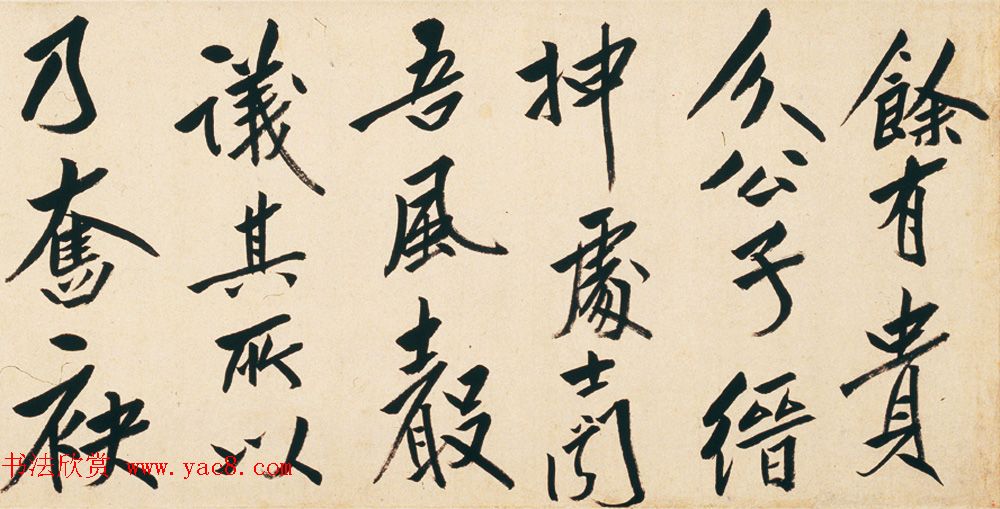 餘有貴
介公子縉
抻處士聞
吾風聲
議其所以
乃奮袂
书法欣赏 www.yac8.com